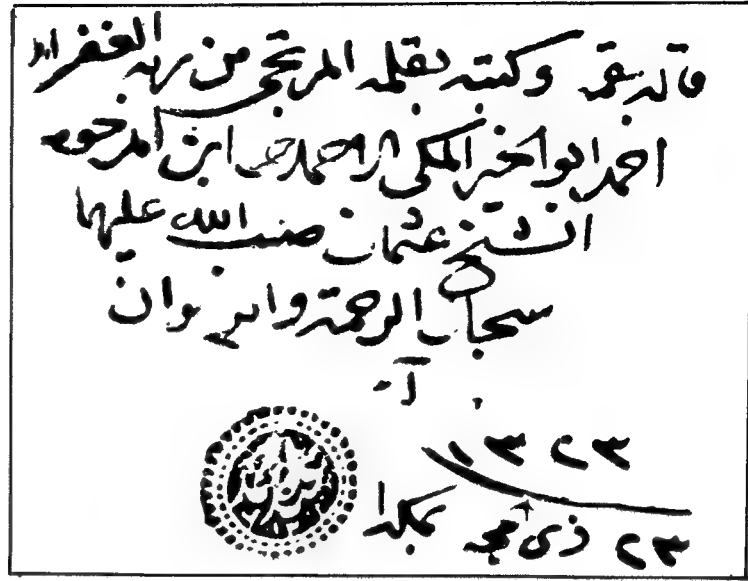 قاله بفمه وكتبه بقلمه المرتجى من ربه الغفران
احمد ابو الخير المكى ابن المرحوم
الشيخ عثمان صب الله عليهما
سحائب الرحمة والرضوان
١٣٢٣
٢٣ ذى حجه